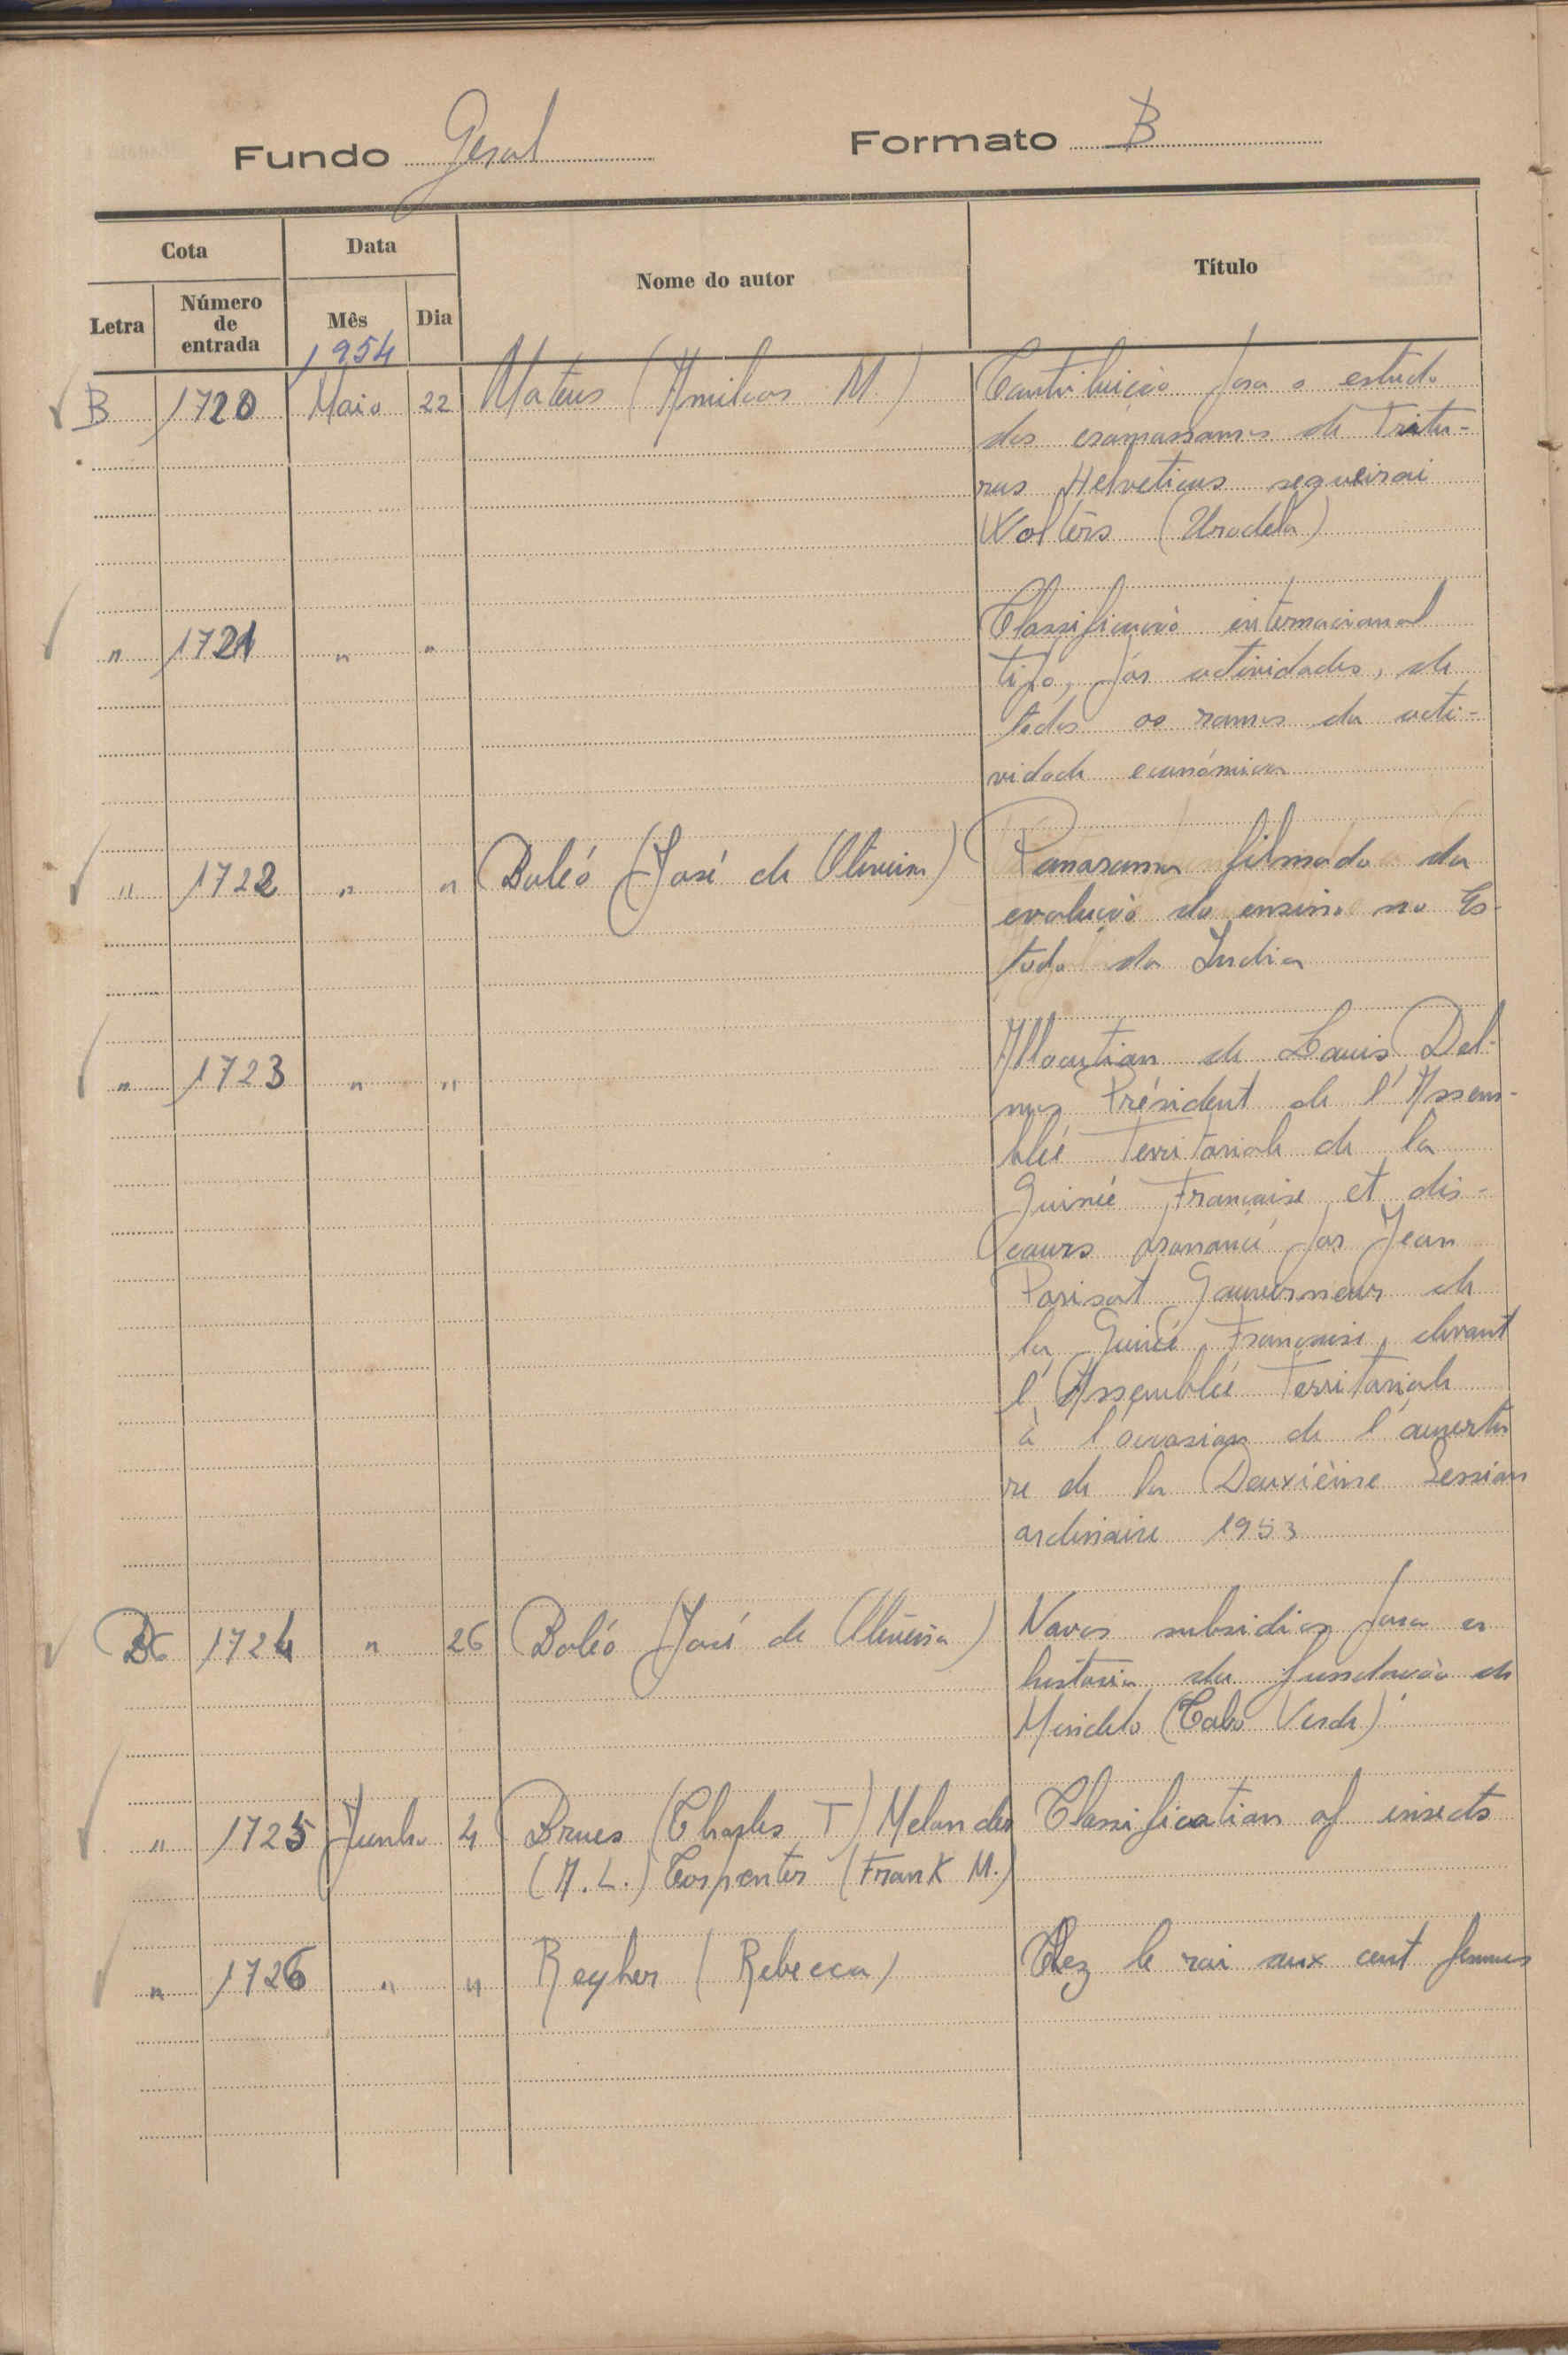 Fundo Geral Formato B
Cota Data Nome do autor Título
Letra Número de entrada Mês Dia
1954
B 1720 Maio 22 Mateus (Amilcar M.) Contribuição para o estudo
dos cromossomas de Tritu-
rus Helveticus sequeirai
Wolters (Urodela)
" 1721 " " Classificação internacional
tipo, por actividades, de
todos os ramos da acti-
vidade económica
" 1722 " " Boléo (José de Oliveira) Panorama filmado da
evolução do ensino no Es-
tado da India
" 1723 " " Allocution de Louis Del-
mas Président de l'Assem-
blée Territoriale de la
Guinée Française et dis-
cours prononcé par Jean
Parisot Gouverneur de
la Guinée Française, devant
l'Assemblée Territoriale
à l'occasion de l'ouvertu
re de la Deuxième Session
ordinaire 1953
1724 " 26 Boléo (José de Oliveira) Novos subsidios para a
historia da fundação de
Mindelo (Cabo Verde)
" 1725 Junho 4 Brues (Charles T) Melander Classification of insects
(A. L.) Carpenter (Frank M.)
" 1726 " " Reyher (Rebecca) Chez le roi aux cent femmes